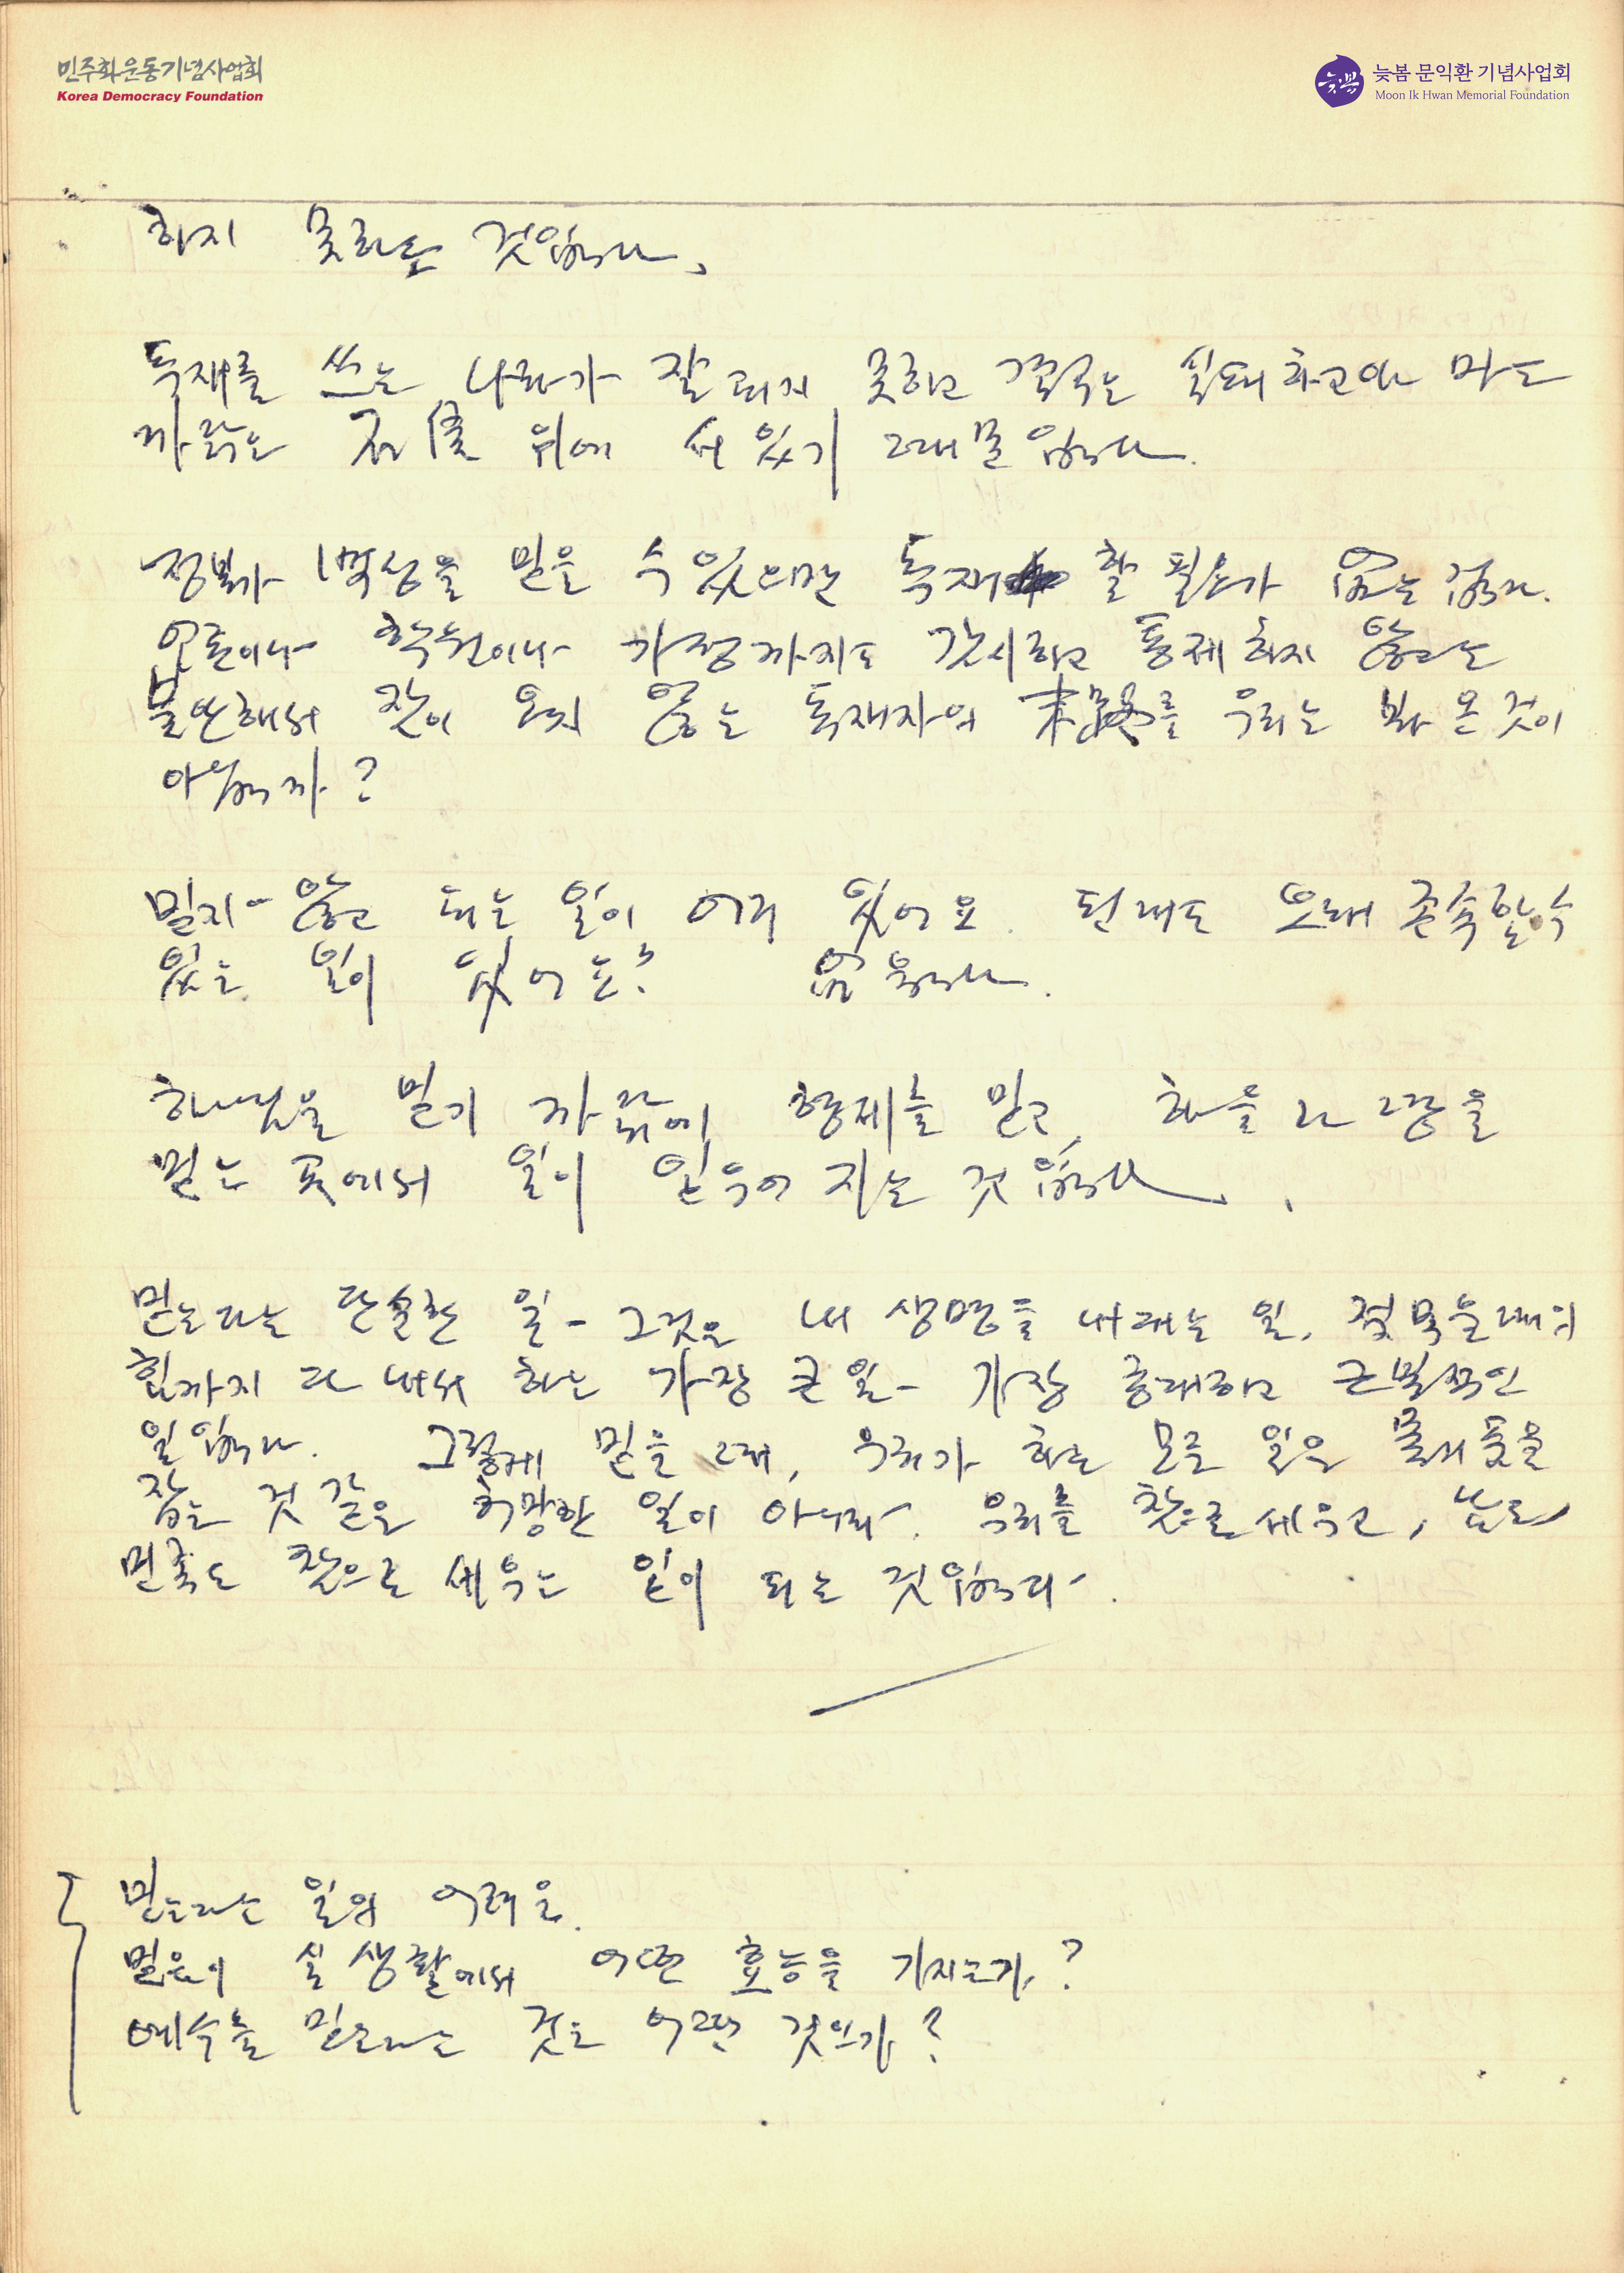 민주화운동기념사업회
Korea Democracy Foundation
늦봄
늦봄 문익환 기념사업회
Moon Ik Hwan Memorial Foundation
하지 못하는 것입니다.
독재를 쓰는 나라가 잘 되지 못하고 결국는 실패하고야 마는
까닭은 不信 위에 서 있기 때문입니다.
정부가 백성을 믿을 수 있으면 독재 할 필요가 없는 겁니다.
언론이나 학원이나 가정까지도 감시하고 통제하지 않고는
불안해서 잠이 오지 않는 독재자의 末路를 우리는 봐 온 것이
아닙니까?
믿지 않고 되는 일이 어디 있어요. 된대도 오래 존속할 수
있는 일이 있어요? 없습니다.
하나님을 믿기 까닭에 형제를 믿고, 하늘과 땅을
믿는 곳에서 일이 이루어 지는 것입니다.
믿는다는 단순한 일 - 그것은 내 생명을 내대는 일, 젖먹을 때의
힘까지 다 내서 하는 가장 큰 일 - 가장 중대하고 근본적인
일입니다. 그렇게 믿을 때, 우리가 하는 모든 일은
잡는 것 같은 허망한 일이 아니라, 우리를 참으로 세우고,
민족도 참으로 세우는 일이 되는 것입니다.
믿는다는 일의 어려움.
믿음이 실생활에서 어떤 효능을 가지는가?
예수를 믿는다는 것은 어떤 것인가?